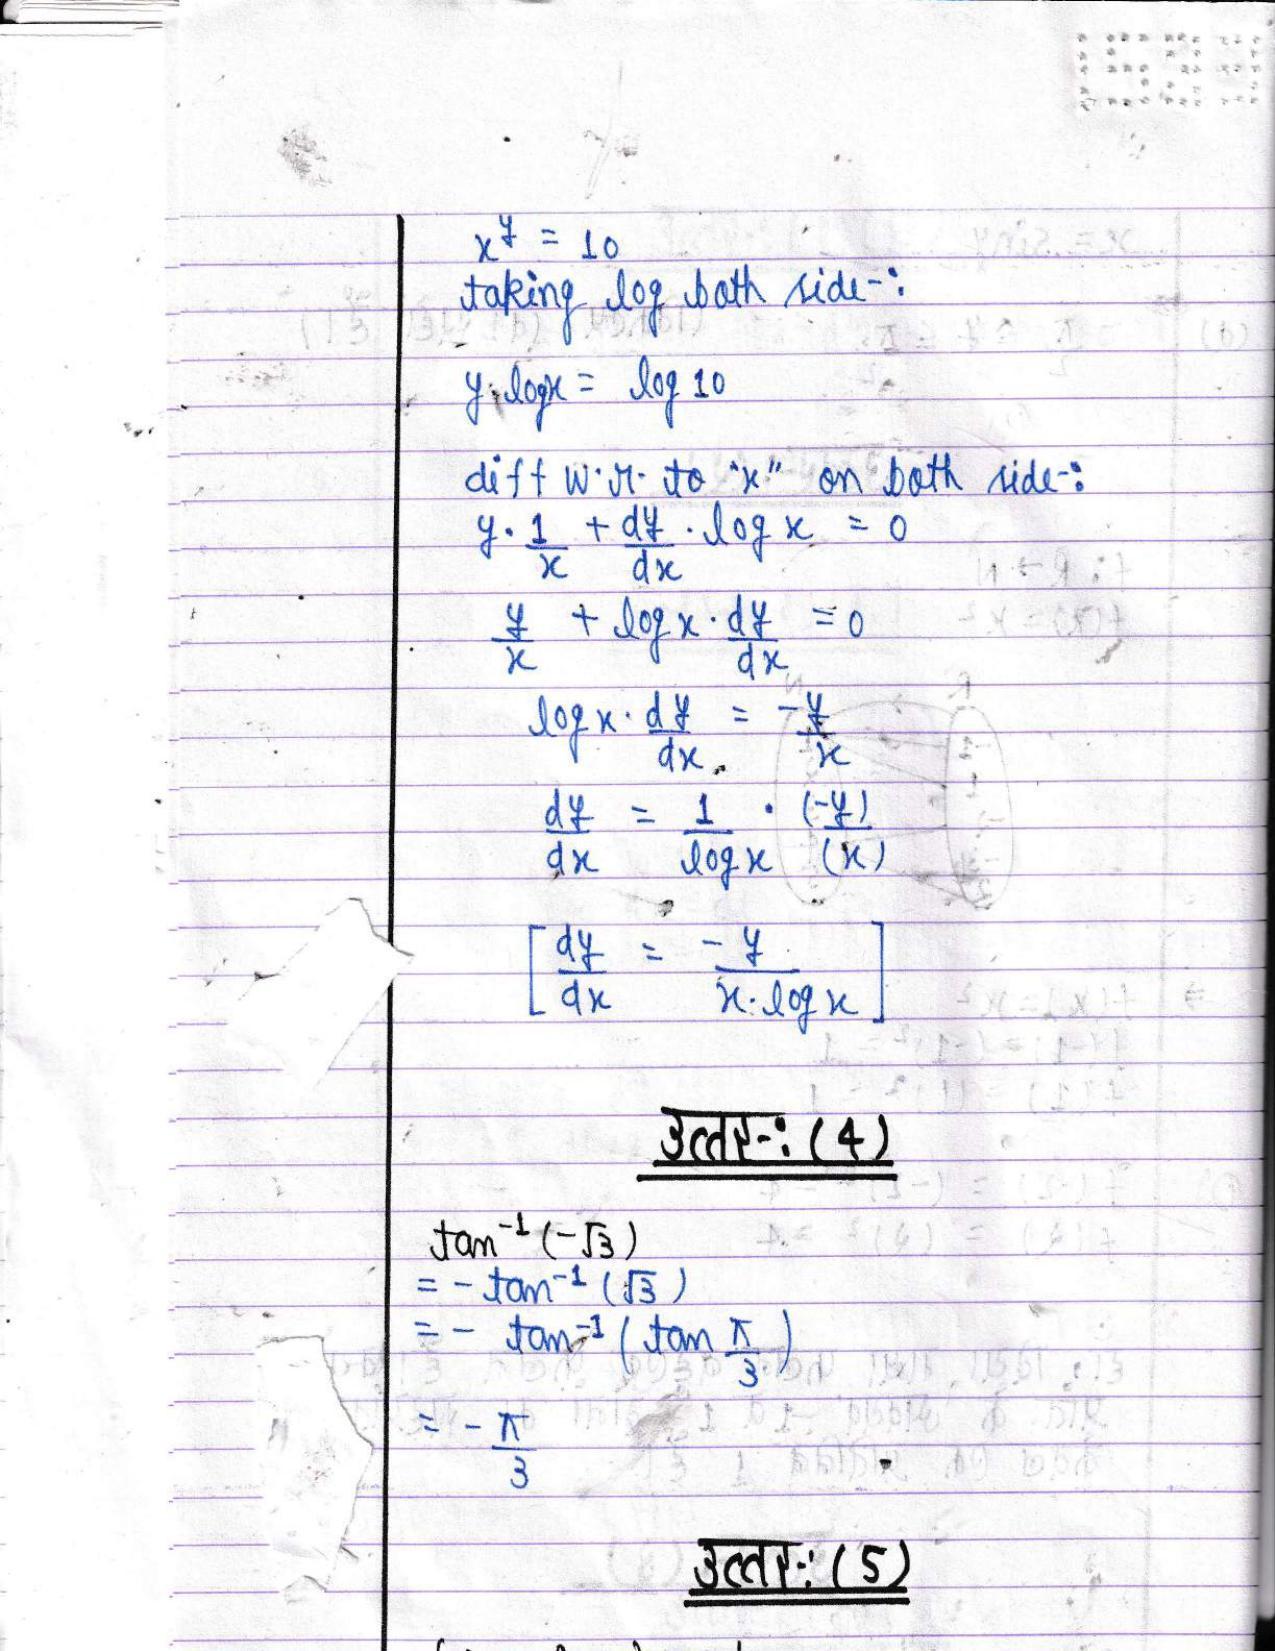 x^y = 10
taking log both side-:
y. logx = log 10
diff w.r. to "x" on both side-:
y. 1/x + dy/dx . log x = 0
y/x + log x . dy/dx = 0
log x . dy/dx = -y/x
dy/dx = 1/log x . (-y)/(x)
[dy/dx = -y/x. log x]
उत्तर-: (4)
tan⁻¹ (-√3)
= - tan⁻¹ (√3)
= - tan⁻¹ (tan π/3)
= - π/3
उत्तर-: (5)